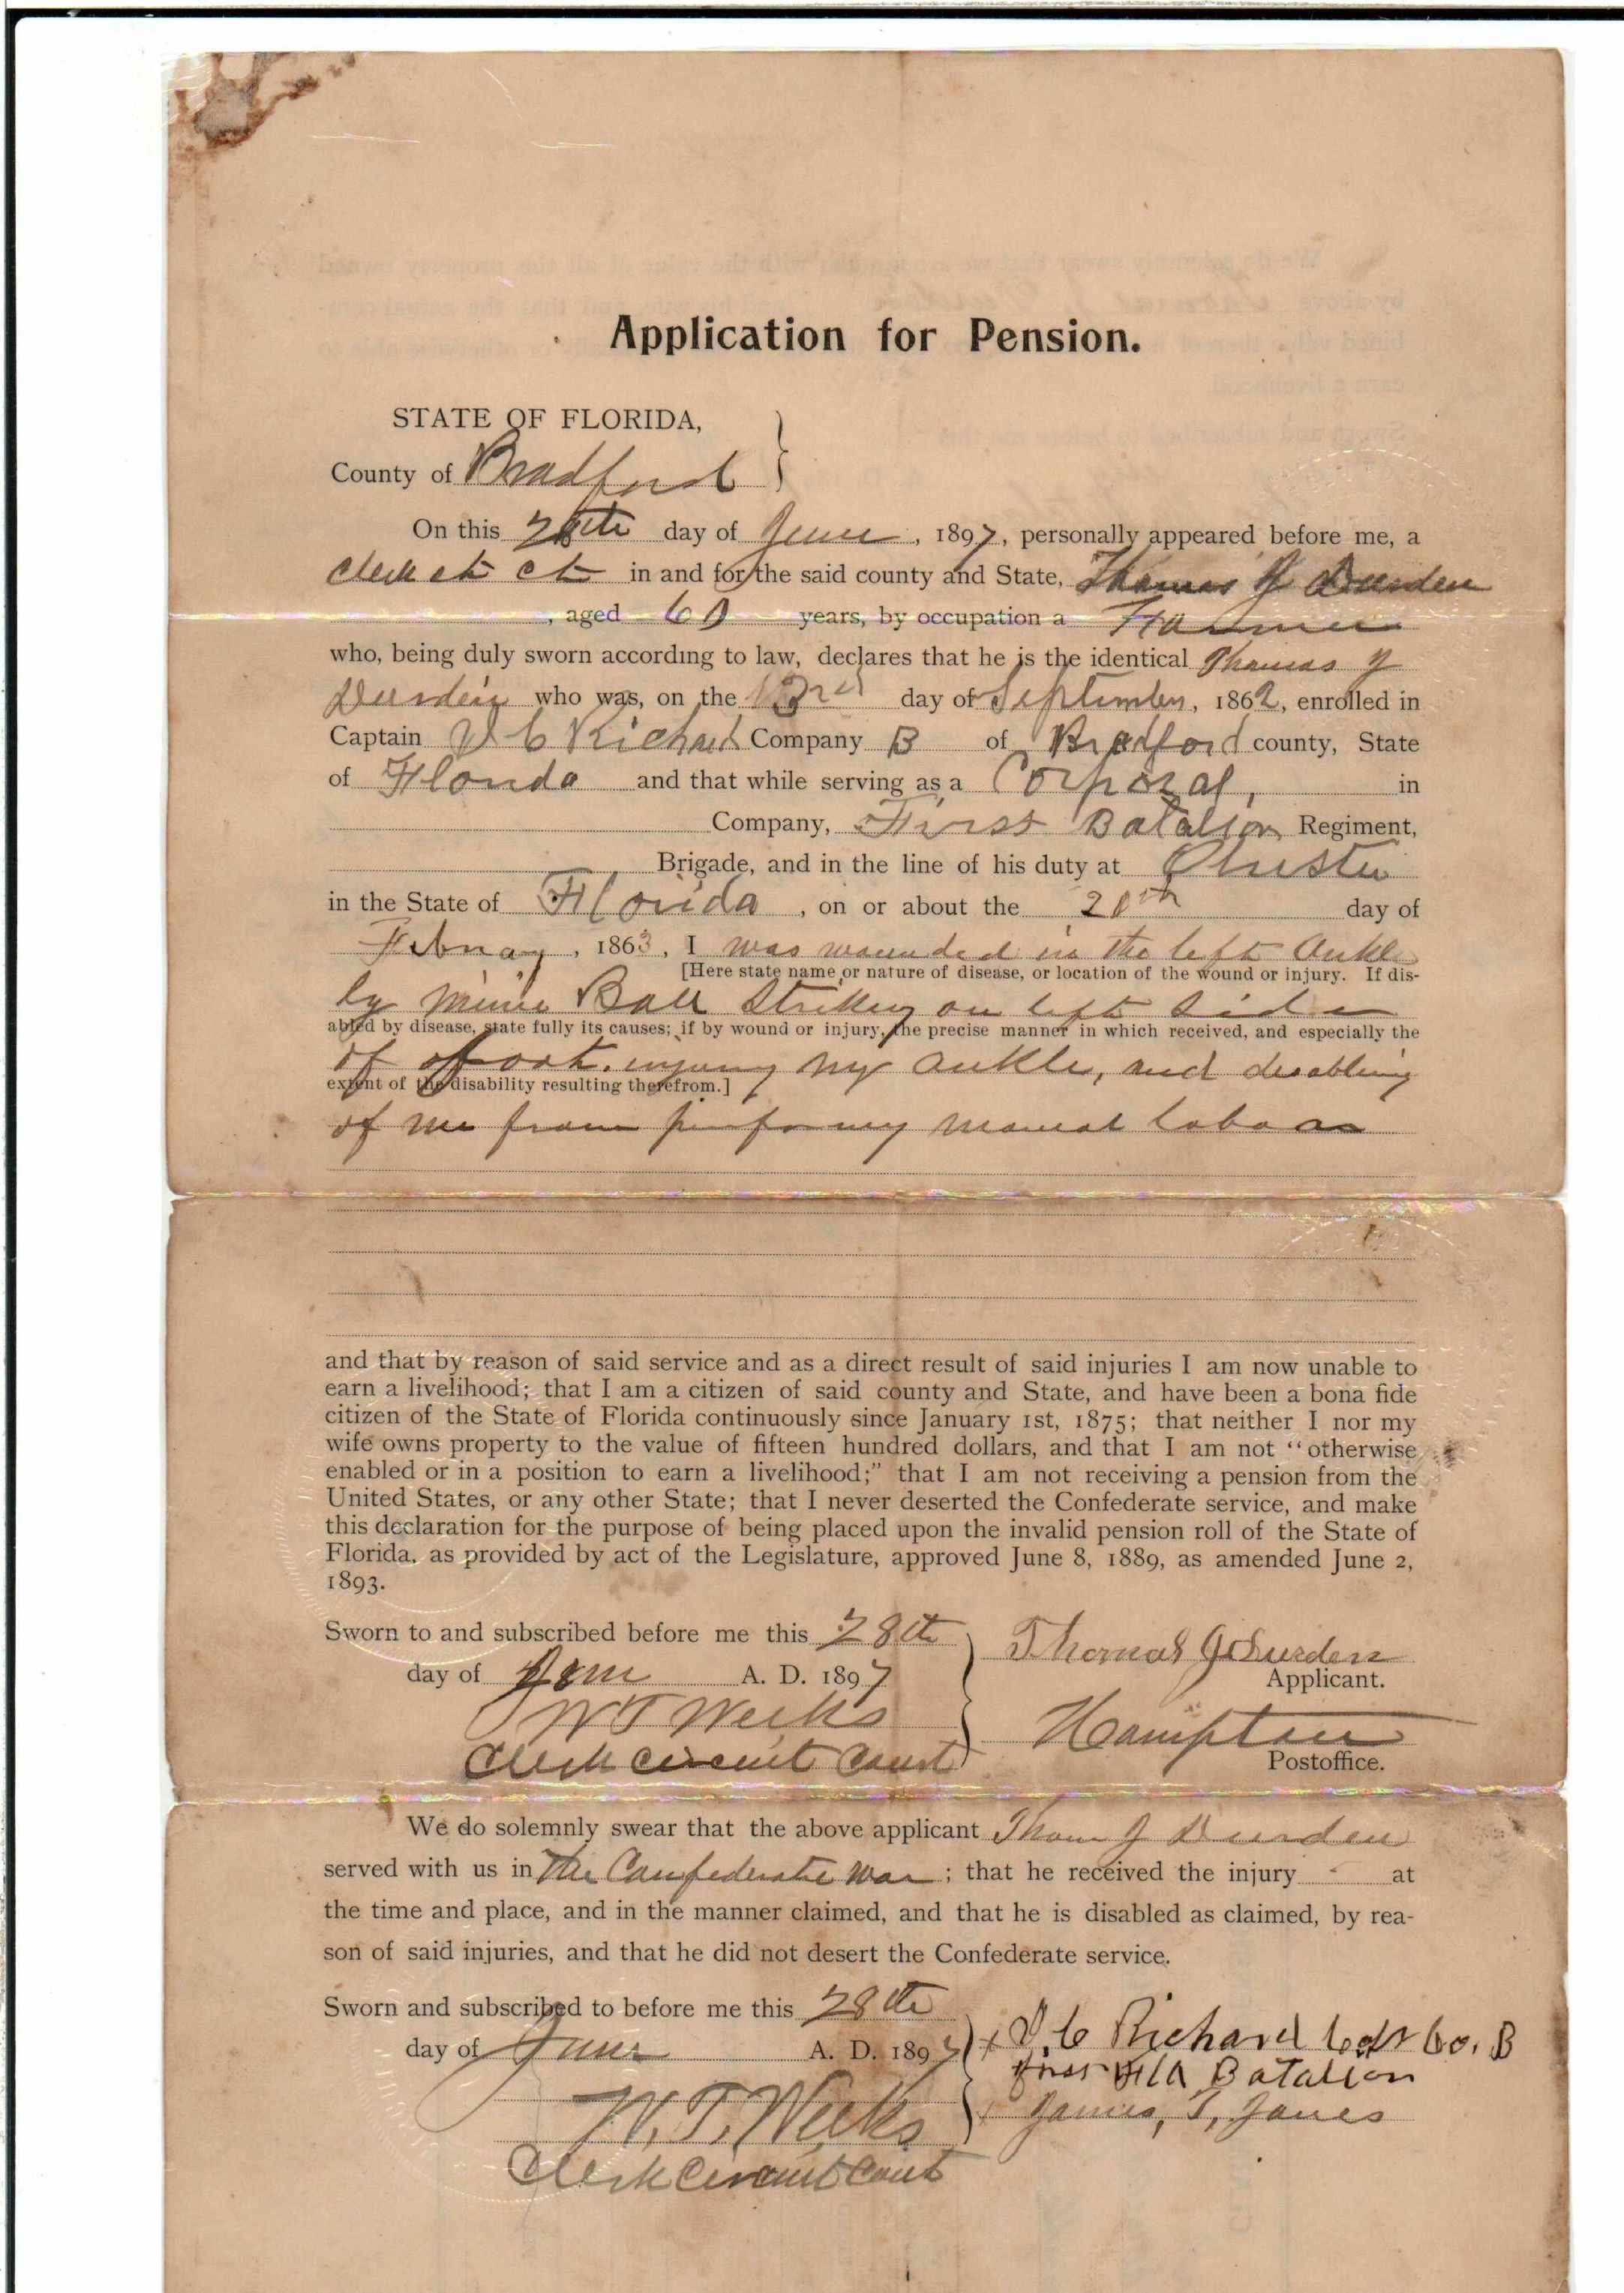 Application for Pension.
STATE OF FLORIDA,
County of Bradford
On this 28th day of June, 1897, personally appeared before me, a
Clerk ct ct in and for the said county and State, Thomas J Durden
, aged 60 years, by occupation a Farmer
who, being duly sworn according to law, declares that he is the identical Thomas J
Durden who was, on the day of September, 1862, enrolled in
Captain J C Richard Company B of Bradford county, State
of Florida and that while serving as a Corporal, in
Company, First Batalion Regiment,
Brigade, and in the line of his duty at Olustee
in the State of Florida, on or about the 20th day of
Februay, 1863, I was wounded in the left Ankle
[Here state name or nature of disease, or location of the wound or injury. If dis-
by Minie Ball Striking on left Side
abled by disease, state fully its causes; if by wound or injury, the precise manner in which received, and especially the
of foot. injuring my ankle, and disabling
extent of the disability resulting therefrom.]
of me from performing manual labor
and that by reason of said service and as a direct result of said injuries I am now unable to
earn a livelihood; that I am a citizen of said county and State, and have been a bona fide
citizen of the State of Florida continuously since January 1st, 1875; that neither I nor my
wife owns property to the value of fifteen hundred dollars, and that I am not "otherwise
enabled or in a position to earn a livelihood;" that I am not receiving a pension from the
United States, or any other State; that I never deserted the Confederate service, and make
this declaration for the purpose of being placed upon the invalid pension roll of the State of
Florida, as provided by act of the Legislature, approved June 8, 1889, as amended June 2,
1893.
Sworn to and subscribed before me this 28th
day of June A. D. 1897
Thomas J Durden
Applicant.
W T Weeks
Clerk Circuit Court
Hampton
Postoffice.
We do solemnly swear that the above applicant Thom J Durden
served with us in The Confederate War; that he received the injury at
the time and place, and in the manner claimed, and that he is disabled as claimed, by rea-
son of said injuries, and that he did not desert the Confederate service.
Sworn and subscribed to before me this 28th
day of June A. D. 1897
J. C Richard Capt Co. B
first Fla Batalion
James, T, Jones
W. T. Weeks
Clerk Circuit Court